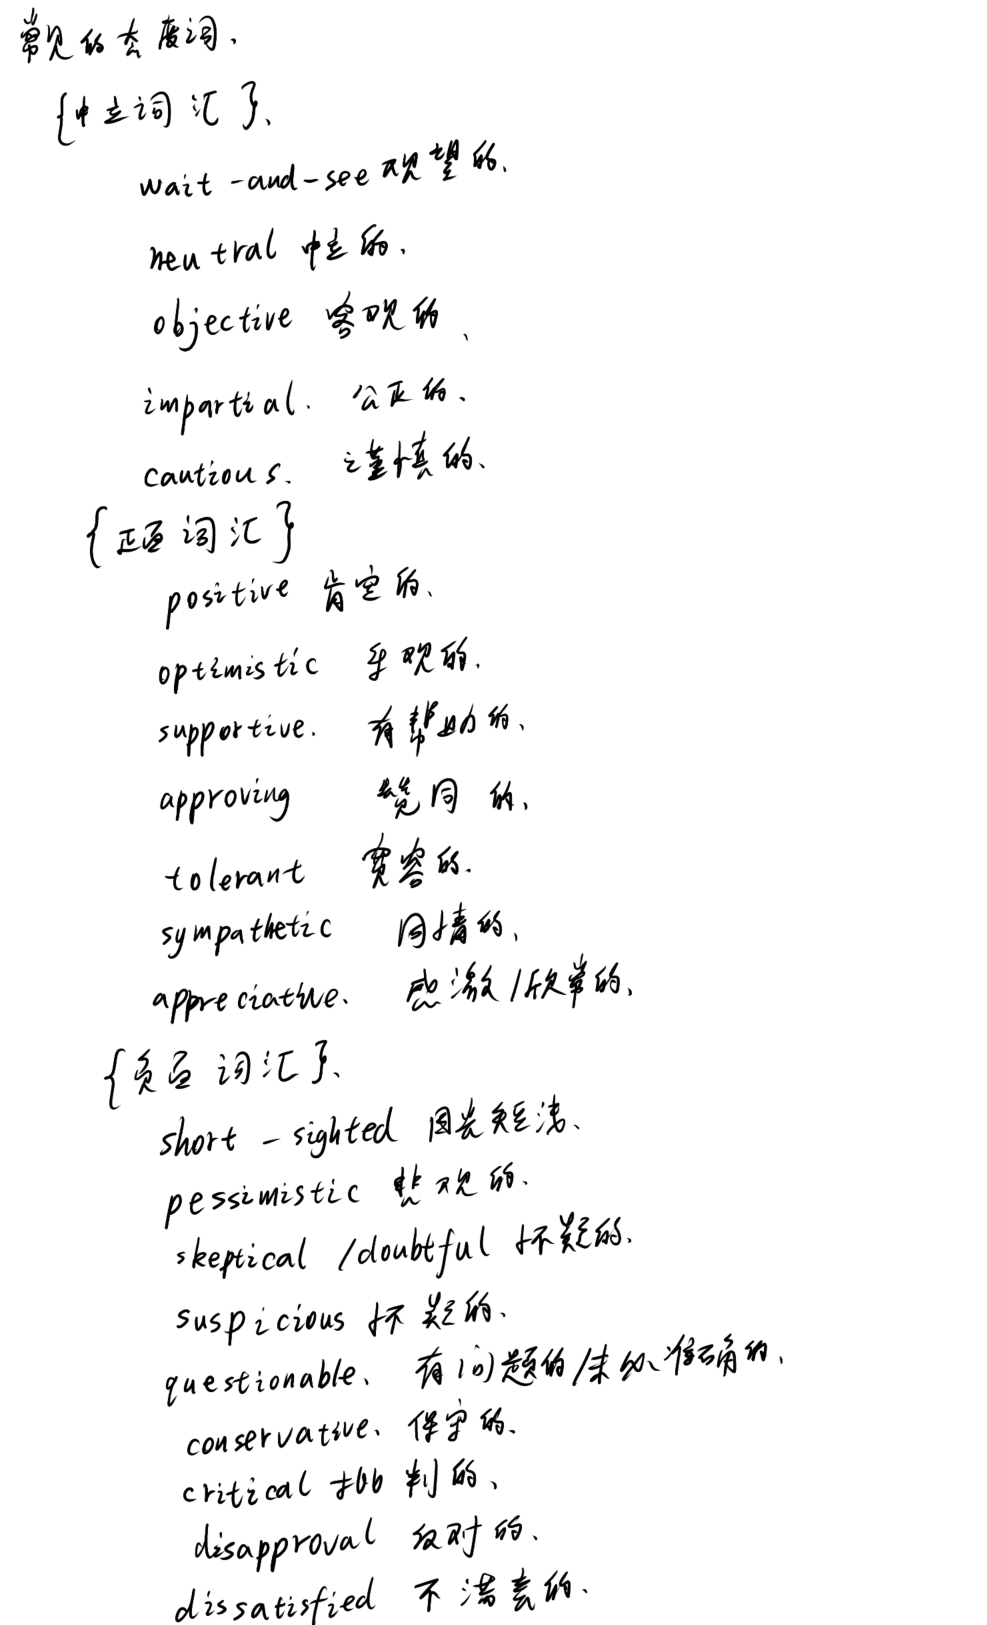 常见的态度词、
{中立词汇}、
wait-and-see 观望的、
neutral 中立的、
objective 客观的、
impartial. 公正的、
cautious. 谨慎的、
{正面词汇}
positive 肯定的、
optimistic 乐观的、
supportive. 有帮助的、
approving 赞同的、
tolerant 宽容的、
sympathetic 同情的、
appreciative、 感激/欣赏的、
{负面词汇}、
short-sighted 目光短浅、
pessimistic 悲观的、
skeptical /doubtful 怀疑的、
suspicious 怀疑的、
questionable、 有问题的/未必准确的、
conservative、 保守的、
critical 批判的、
disapproval 反对的、
dissatisfied 不满意的、